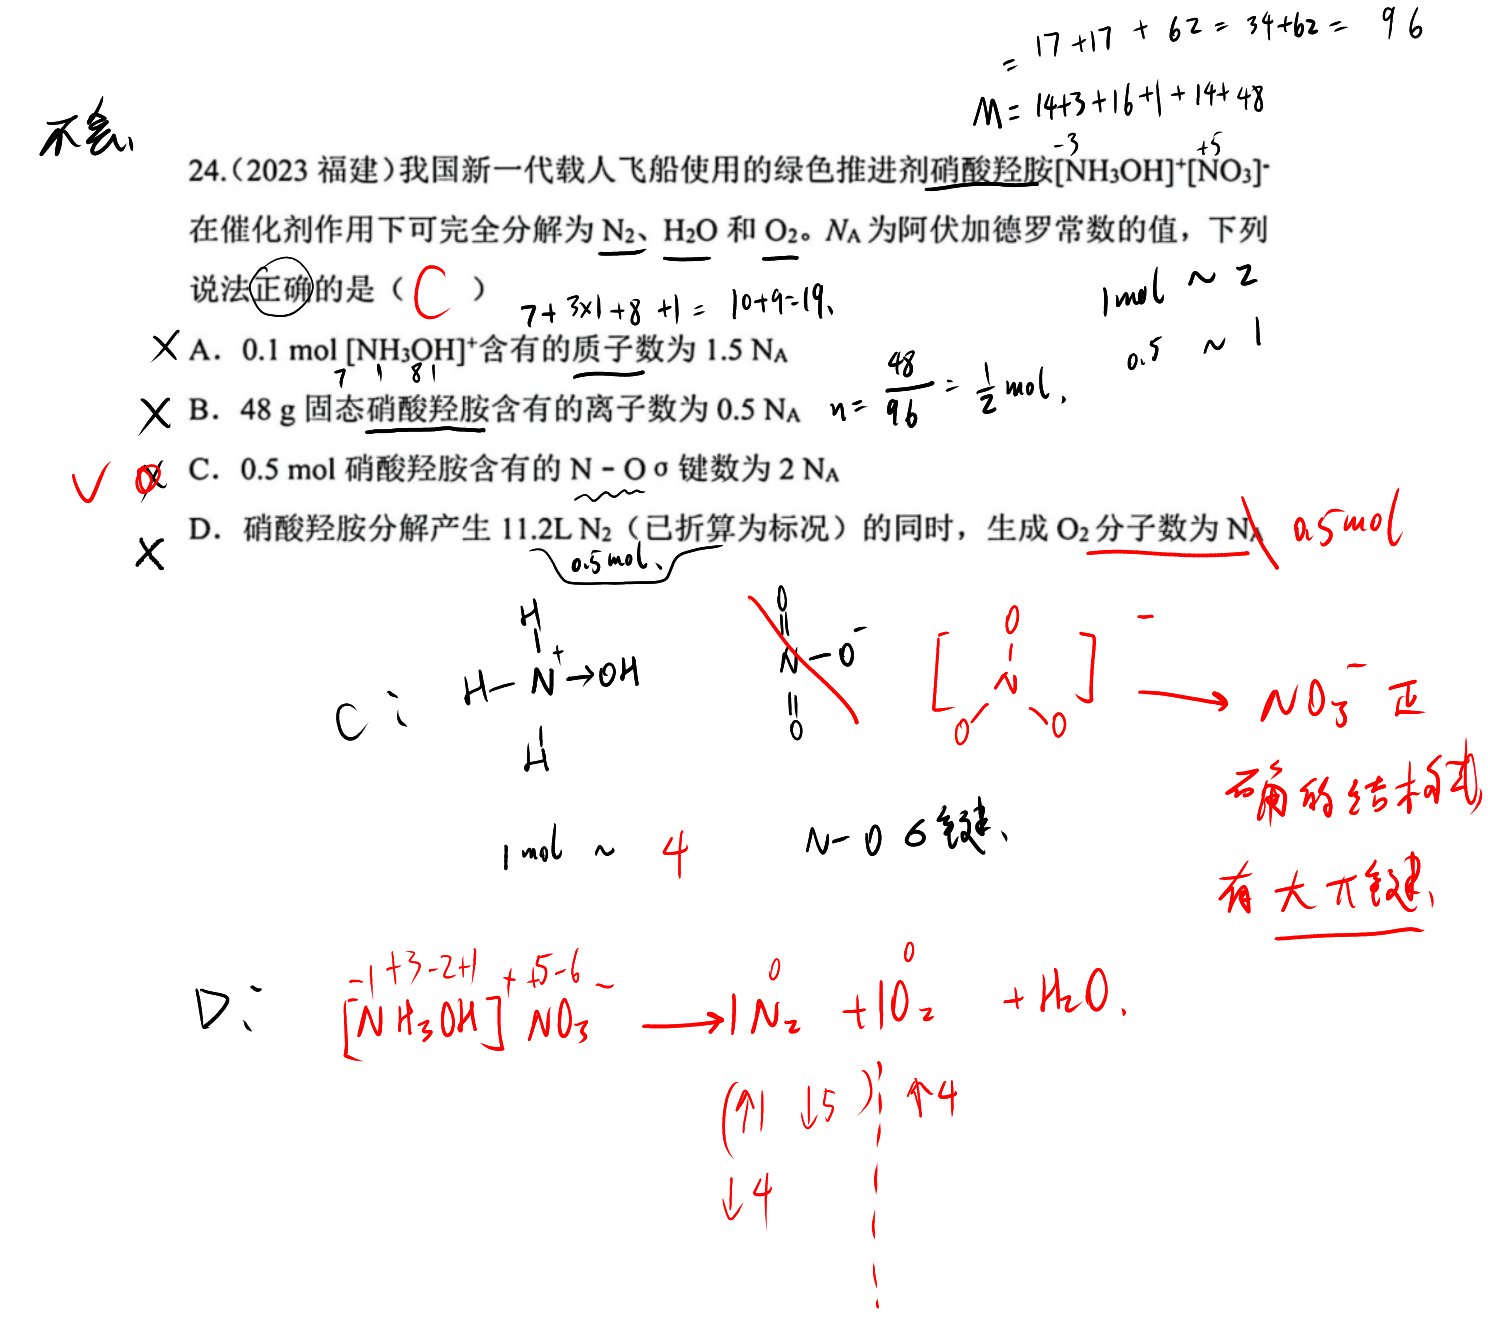 = 17+17 + 62 = 34+62 = 96
M = 14+3+16+1+14+48
不会、
-3 +5
24.（2023 福建）我国新一代载人飞船使用的绿色推进剂硝酸羟胺[NH₃OH]⁺[NO₃]⁻
在催化剂作用下可完全分解为 N₂、H₂O 和 O₂。NA 为阿伏加德罗常数的值，下列
说法正确的是（ C ）
7+3×1+8+1= 10+9=19、
1mol ~ 2
0.5 ~ 1
× A．0.1 mol [NH₃OH]⁺含有的质子数为 1.5 NA
7 1 8 1
× B．48 g 固态硝酸羟胺含有的离子数为 0.5 NA
n= 48/96 = 1/2 mol.
√ C．0.5 mol 硝酸羟胺含有的 N－O σ 键数为 2 NA
× D．硝酸羟胺分解产生 11.2L N₂（已折算为标况）的同时，生成 O₂ 分子数为 NA
0.5mol
0.5mol、
C：
H
H－N⁺→OH
H
O
N－O⁻
O
[
O
N
O O
]⁻
→ NO₃⁻ 正
确的结构式,
有大π键、
1mol ~ 4
N－O σ键、
D：
-1+3-2+1 +5-6
[NH₃OH]⁺NO₃⁻ → 1N₂ + 1O₂ + H₂O.
0 0
(↑1 ↓5) ↑4
↓4